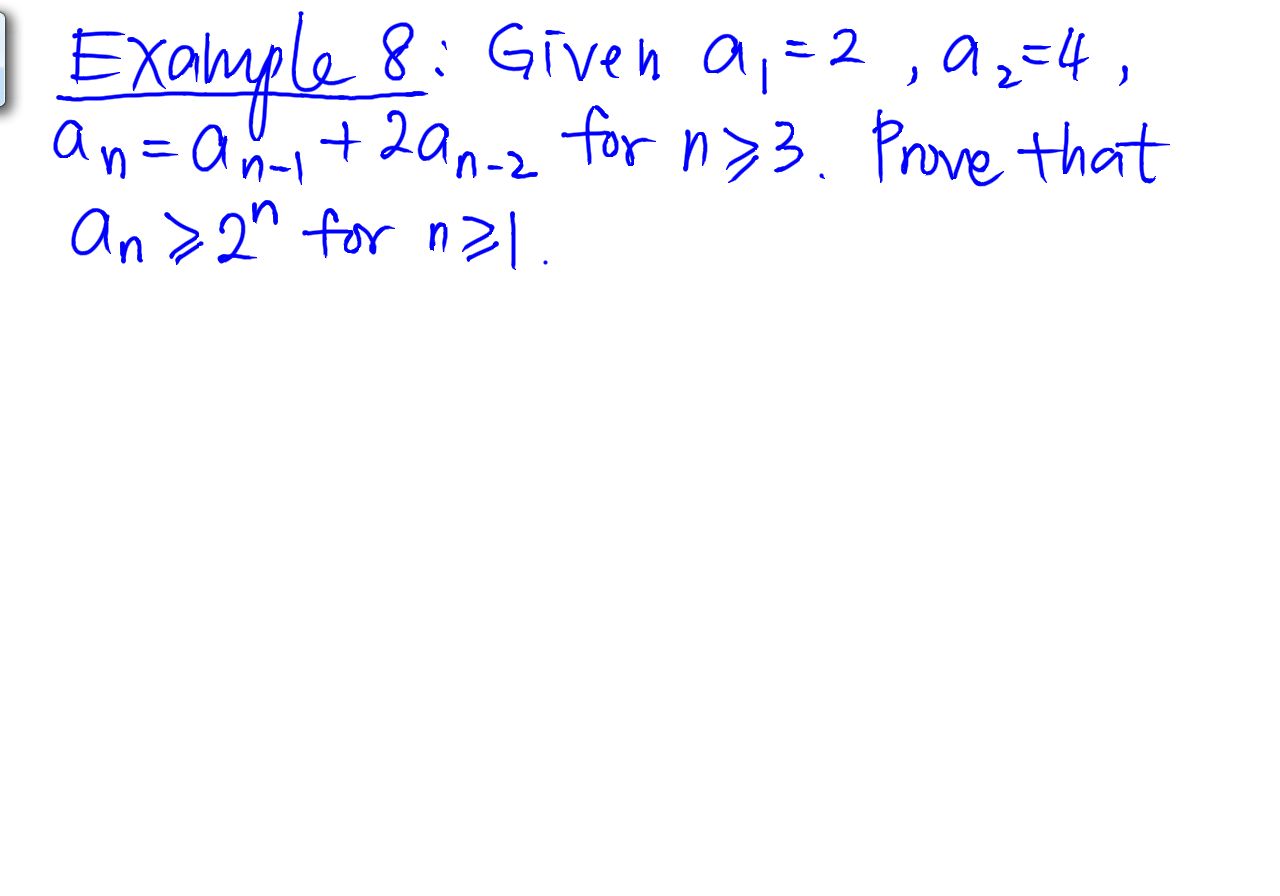 Example 8: Given a₁=2, a₂=4,
aₙ=aₙ₋₁+2aₙ₋₂ for n⩾3. Prove that
aₙ⩾2ⁿ for n⩾1.